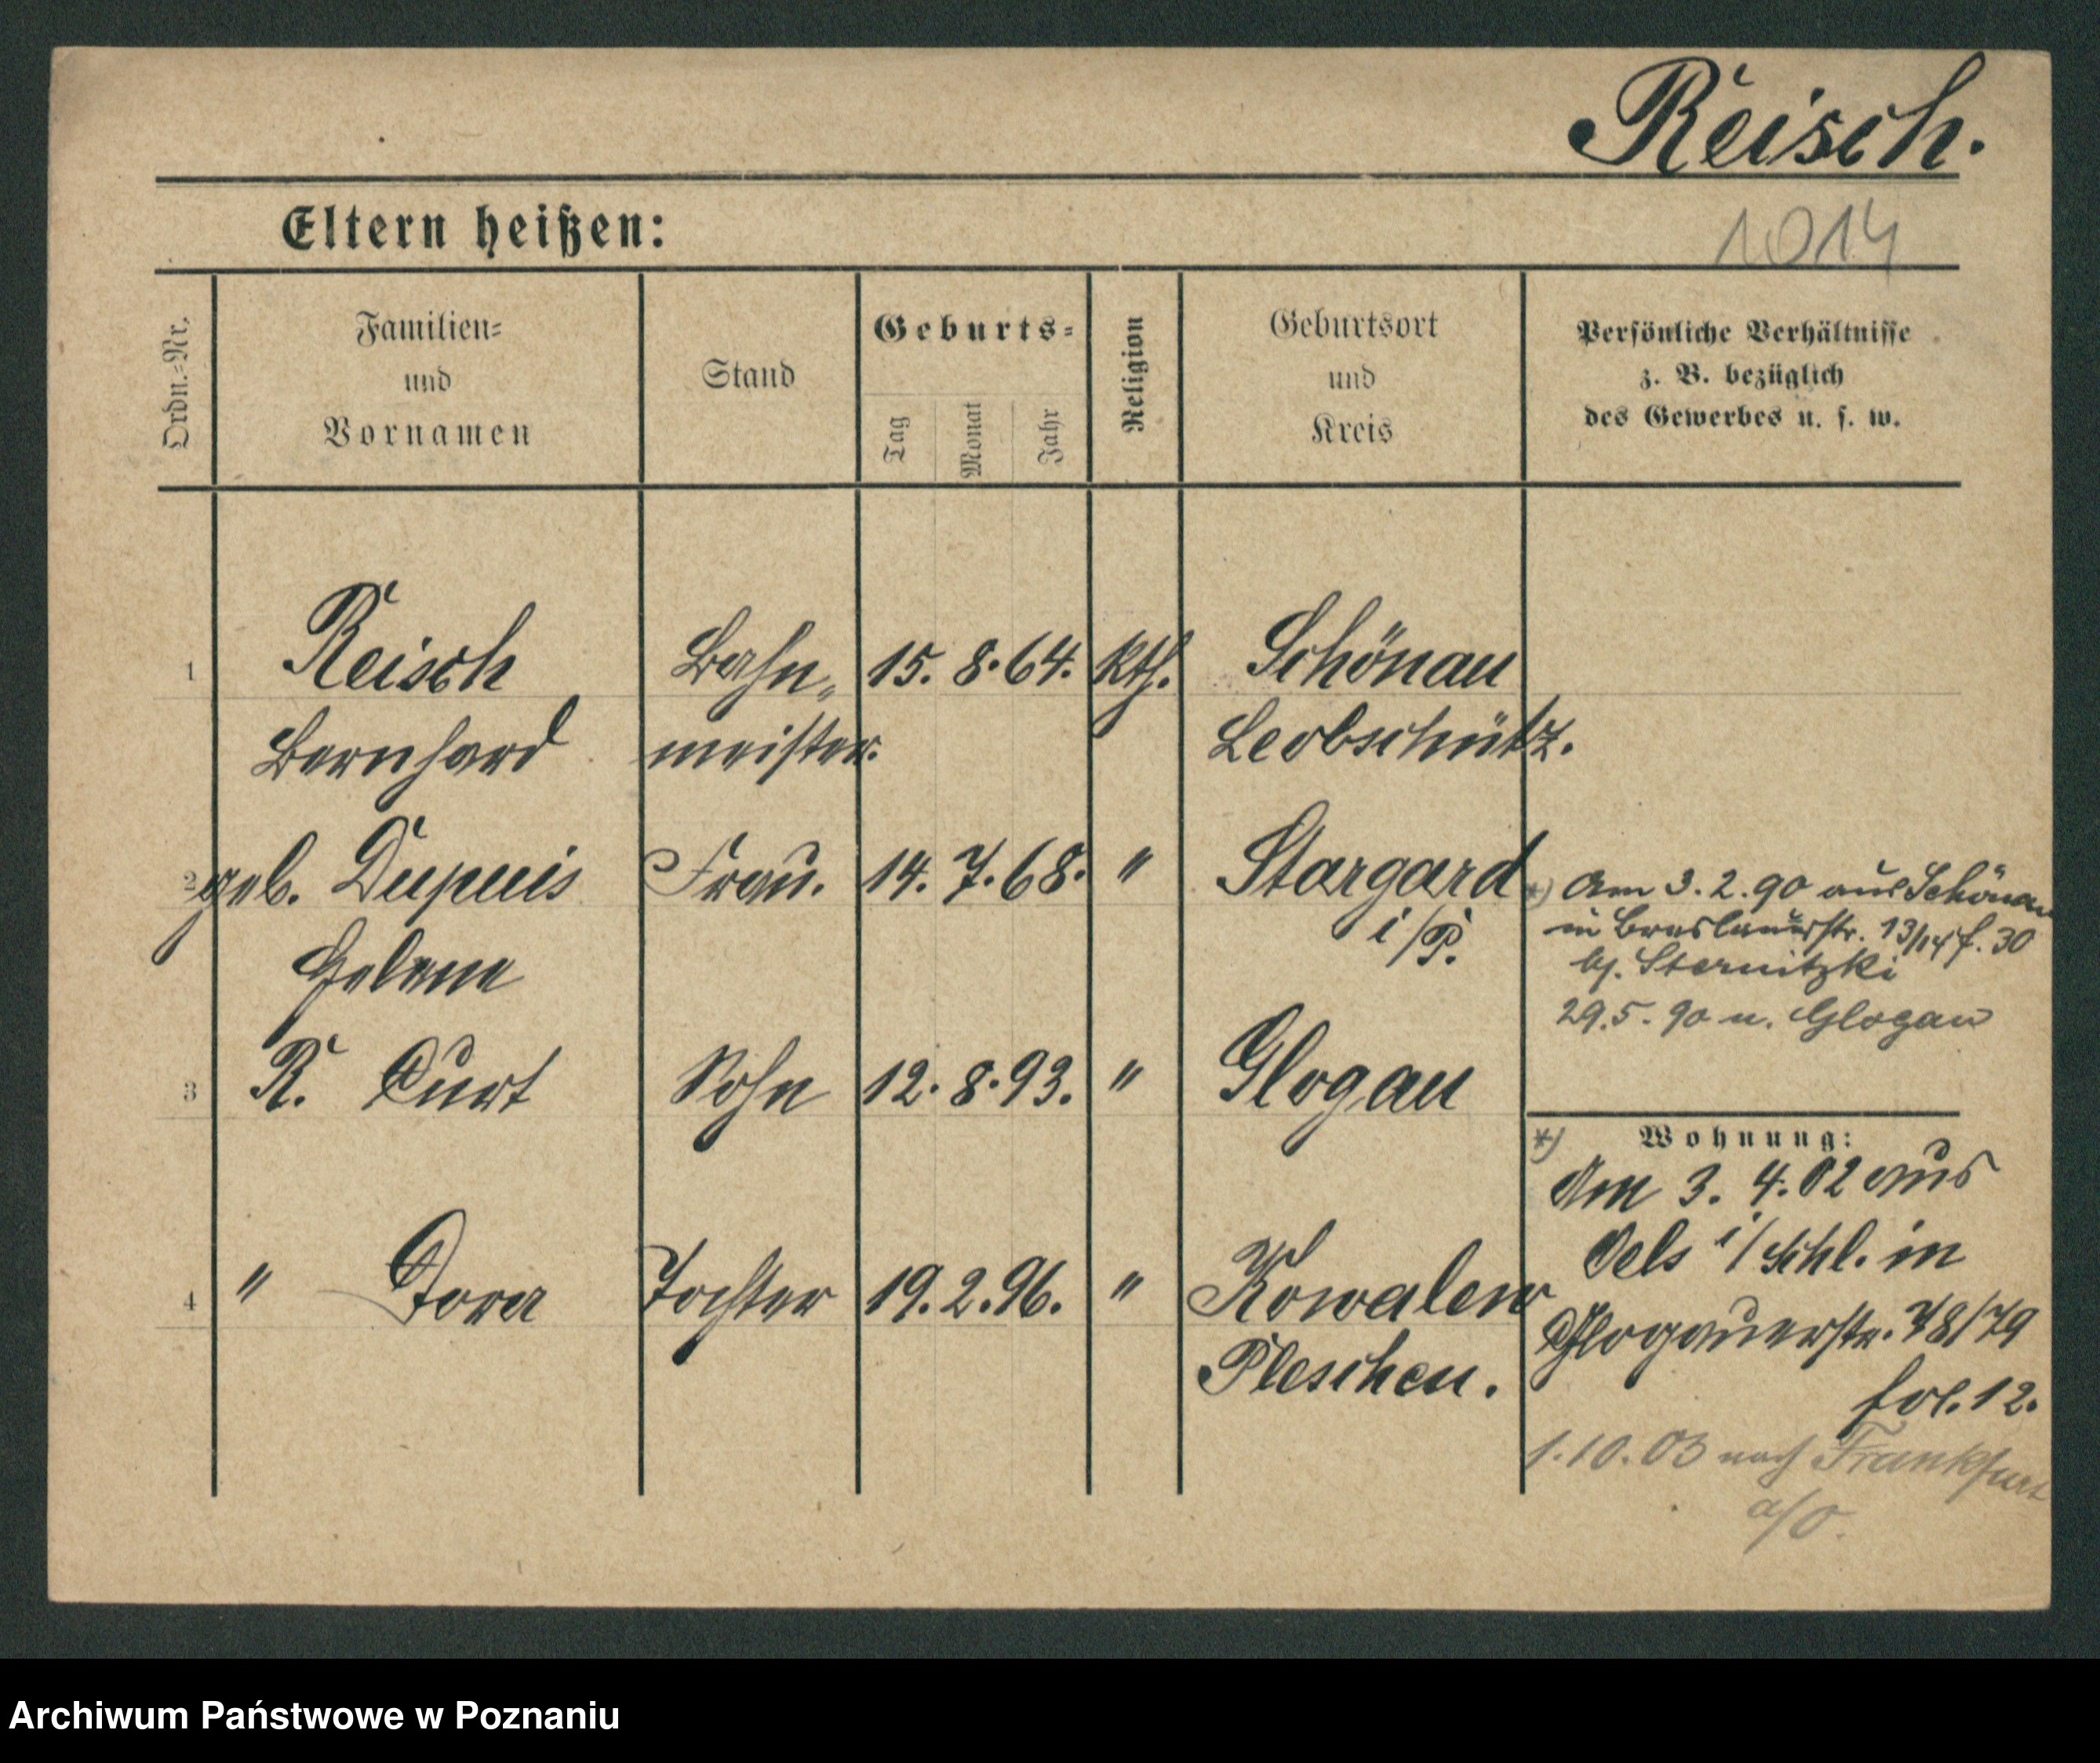 Reisch.
Eltern heißen:
1014
Ordn.-Nr.
Familien-
und
Vornamen
Stand
Geburts-
Tag
Monat
Jahr
Religion
Geburtsort
und
Kreis
Persönliche Verhältnisse
z. B. bezüglich
des Gewerbes u. s. w.
1 Reisch Bahn- 15. 8. 64. kth. Schönau
Bernhard meister. Leobschütz.
2 geb. Dupuis Frau. 14. 7. 68. " Stargard
i/P.
Helene
*) Am 3. 2. 90 aus Schönau
in Breslauerstr. 13/14 f. 30
bj. Sternitzki
29. 5. 90 n. Glogau
3 R. Curt Sohn 12. 8. 93. " Glogau
4 " Dora Tochter 19. 2. 96. " Kowalew
Pleschen.
*) Wohnung:
Am 3. 4. 02 aus
Oels i/Schl. in
Glogauerstr. 78/79
fol. 12.
1. 10. 03 nach Frankfurt
a/O.
Archiwum Państwowe w Poznaniu